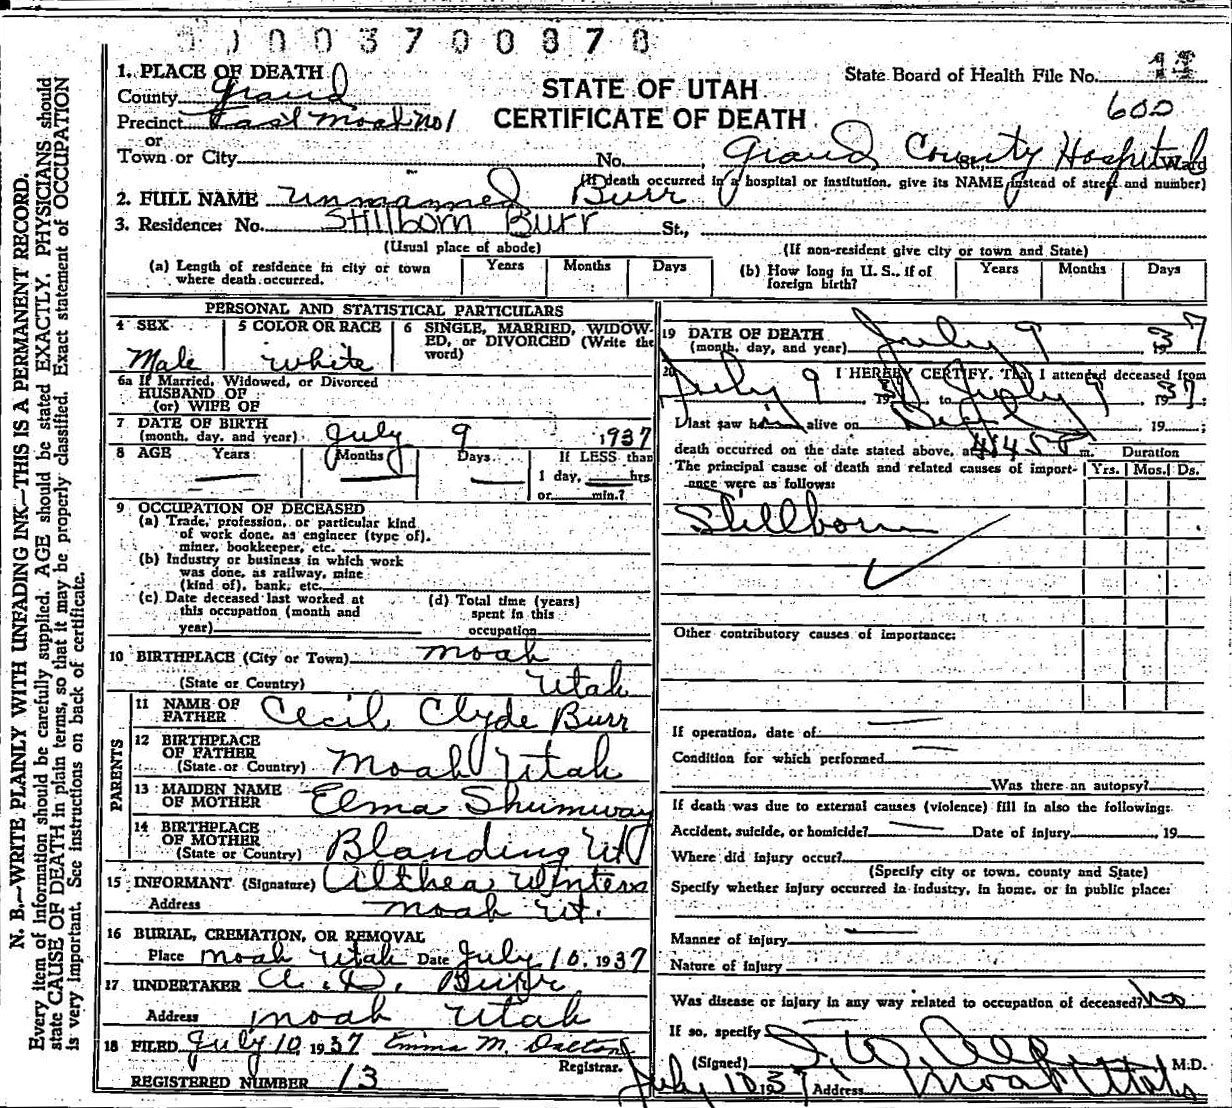 0003700878
1. PLACE OF DEATH
STATE OF UTAH
CERTIFICATE OF DEATH
State Board of Health File No.
600
County Grand
Precinct East Moab No 1
or
Town or City No. Grand County Hospital St., Ward
(If death occurred in a hospital or institution, give its NAME instead of street and number)
2. FULL NAME Unnamed Burr
3. Residence: No. Stillborn Burr St.,
(Usual place of abode) (If non-resident give city or town and State)
(a) Length of residence in city or town where death occurred. Years Months Days
(b) How long in U. S., if of foreign birth? Years Months Days
PERSONAL AND STATISTICAL PARTICULARS
4 SEX Male
5 COLOR OR RACE White
6 SINGLE, MARRIED, WIDOWED, or DIVORCED (Write the word)
6a If Married, Widowed, or Divorced
HUSBAND OF
(or) WIFE OF
7 DATE OF BIRTH
(month, day, and year) July 9 1937
8 AGE Years Months Days If LESS than
1 day, hrs
or min.?
9 OCCUPATION OF DECEASED
(a) Trade, profession, or particular kind
of work done, as engineer (type of),
miner, bookkeeper, etc.
(b) Industry or business in which work
was done, as railway, mine
(kind of), bank, etc.
(c) Date deceased last worked at
this occupation (month and
year)
(d) Total time (years)
spent in this
occupation
10 BIRTHPLACE (City or Town) Moab
(State or Country) Utah
PARENTS
11 NAME OF FATHER Cecil Clyde Burr
12 BIRTHPLACE OF FATHER
(State or Country) Moab Utah
13 MAIDEN NAME OF MOTHER Elma Shumway
14 BIRTHPLACE OF MOTHER
(State or Country) Blanding Ut
15 INFORMANT (Signature) Althea Winters
Address Moab Ut.
16 BURIAL, CREMATION, OR REMOVAL
Place Moab Utah Date July 10, 1937
17 UNDERTAKER Burr
Address Moab Utah
18 FILED July 10 1937 Emma M. Dalton
Registrar.
REGISTERED NUMBER 13
19 DATE OF DEATH
(month, day, and year) July 9 1937
20 I HEREBY CERTIFY, That I attended deceased from
July 9 19 to July 9 1937
I last saw him alive on 19
death occurred on the date stated above, at m. Duration
The principal cause of death and related causes of importance were as follows: Yrs. Mos. Ds.
Stillborn
Other contributory causes of importance:
If operation, date of
Condition for which performed
Was there an autopsy?
If death was due to external causes (violence) fill in also the following:
Accident, suicide, or homicide? Date of injury , 19
Where did injury occur?
(Specify city or town, county and State)
Specify whether injury occurred in industry, in home, or in public place:
Manner of injury
Nature of injury
Was disease or injury in any way related to occupation of deceased? no
If so, specify
(Signed) M.D.
July 1937 Address Moab Utah
N. B.—WRITE PLAINLY WITH UNFADING INK—THIS IS A PERMANENT RECORD.
Every item of information should be carefully supplied. AGE should be stated EXACTLY. PHYSICIANS should
state CAUSE OF DEATH in plain terms, so that it may be properly classified. Exact statement of OCCUPATION
is very important. See instructions on back of certificate.